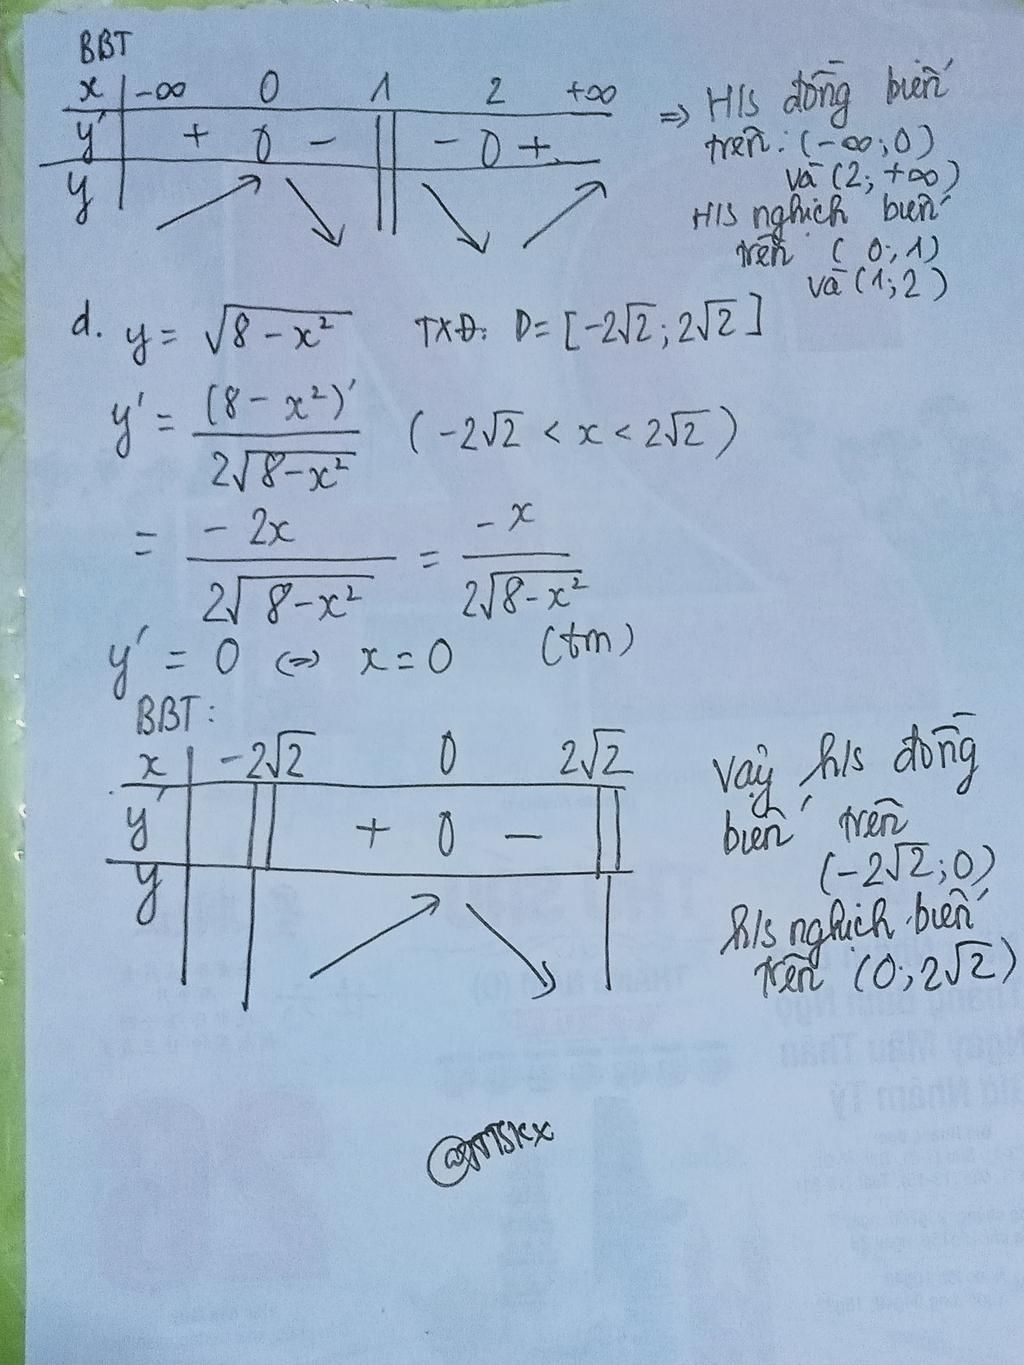 BBT
x -∞ 0 1 2 +∞
y' + 0 - || - 0 +
y
⇒ H/s đồng biến
trên: (-∞; 0)
và (2; +∞)
H/s nghịch biến
trên (0; 1)
và (1; 2)
d. y = √(8 - x²) TXĐ: D = [-2√2; 2√2]
y' = (8 - x²)' / 2√(8 - x²) (-2√2 < x < 2√2)
= -2x / 2√(8 - x²) = -x / 2√(8 - x²)
y' = 0 ⇔ x = 0 (tm)
BBT:
x -2√2 0 2√2
y' || + 0 - ||
y
Vậy h/s đồng
biến trên
(-2√2; 0)
h/s nghịch biến
trên (0; 2√2)